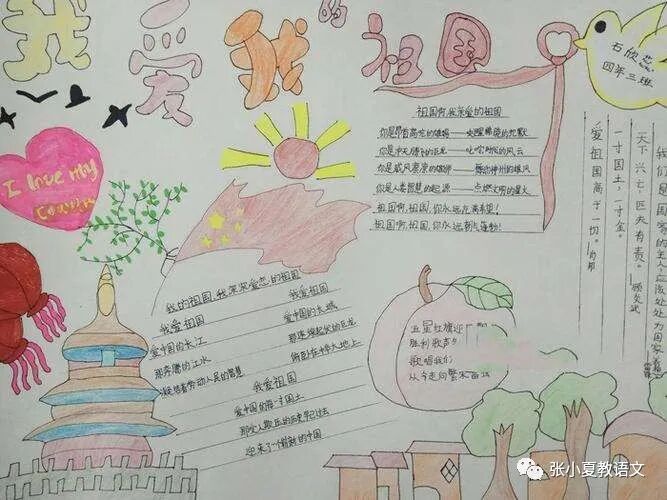 我爱我的祖国
石欣
四年三班
I love My
Country
祖国啊,我亲爱的祖国
你是昂首高亢的雄鸡——唤醒拂晓的沉默
你是冲天腾飞的巨龙——叱咤时代的风云
你是威风凛凛的雄狮——舞动神州的雄风
你是人类智慧的起源——点燃文明的星火
祖国啊,祖国,你永远充满希望!
祖国啊,祖国,你永远朝气蓬勃!
我们是国家的主人,应该处处为国家
天下兴亡,匹夫有责。 顾炎武
一寸国土,一寸金。
爱祖国高于一切。
我的祖国,我深深爱恋的祖国
我爱祖国
爱中国的长江
那奔腾的江水
凝结着劳动人民的智慧
我爱祖国
爱中国的长城
那连绵起伏的巨龙
俯卧在中华大地上
我爱祖国
爱中国的每一寸国土
迎来了一个崭新的中国
五星红旗迎
胜利歌声
歌唱我们
从今走向繁荣富强
张小夏教语文